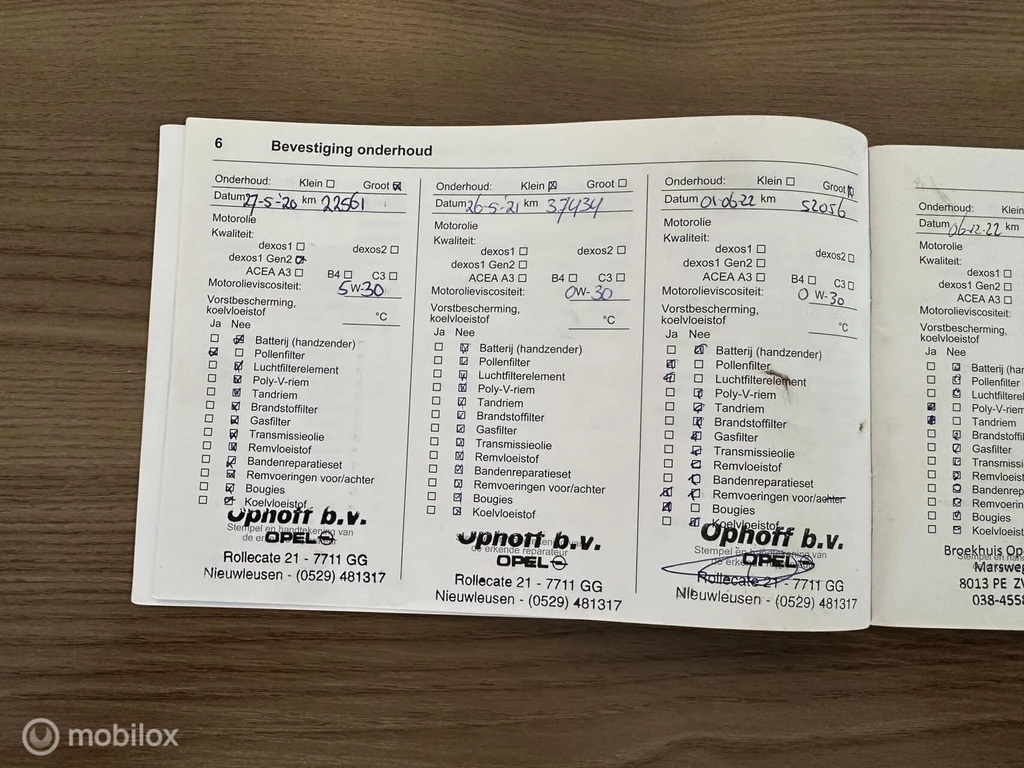 6 Bevestiging onderhoud
Onderhoud: Klein Groot
Datum 27-5-'20 km 22561
Motorolie
Kwaliteit:
dexos1 dexos2
dexos1 Gen2
ACEA A3 B4 C3
Motorolieviscositeit: 5W-30
Vorstbescherming,
koelvloeistof °C
Ja Nee
Batterij (handzender)
Pollenfilter
Luchtfilterelement
Poly-V-riem
Tandriem
Brandstoffilter
Gasfilter
Transmissieolie
Remvloeistof
Bandenreparatieset
Remvoeringen voor/achter
Bougies
Koelvloeistof
Stempel en handtekening van
de erkende
Ophoff b.v.
OPEL
Rollecate 21 - 7711 GG
Nieuwleusen - (0529) 481317
Onderhoud: Klein Groot
Datum 26-5-'21 km 37434
Motorolie
Kwaliteit:
dexos1 dexos2
dexos1 Gen2
ACEA A3 B4 C3
Motorolieviscositeit: 0W-30
Vorstbescherming,
koelvloeistof °C
Ja Nee
Batterij (handzender)
Pollenfilter
Luchtfilterelement
Poly-V-riem
Tandriem
Brandstoffilter
Gasfilter
Transmissieolie
Remvloeistof
Bandenreparatieset
Remvoeringen voor/achter
Bougies
Koelvloeistof
Ophoff b.v.
de erkende reparateur
OPEL
Rollecate 21 - 7711 GG
Nieuwleusen - (0529) 481317
Onderhoud: Klein Groot
Datum 01-06-22 km 52056
Motorolie
Kwaliteit:
dexos1 dexos2
dexos1 Gen2
ACEA A3 B4 C3
Motorolieviscositeit: 0W-30
Vorstbescherming,
koelvloeistof °C
Ja Nee
Batterij (handzender)
Pollenfilter
Luchtfilterelement
Poly-V-riem
Tandriem
Brandstoffilter
Gasfilter
Transmissieolie
Remvloeistof
Bandenreparatieset
Remvoeringen voor/achter
Bougies
Koelvloeistof
Ophoff b.v.
Stempel en handtekening van
OPEL
Rollecate 21 - 7711 GG
Nieuwleusen - (0529) 481317
Onderhoud: Klein
Datum 06-12-22 km
Motorolie
Kwaliteit:
dexos1
dexos1 Gen2
ACEA A3
Motorolieviscositeit:
Vorstbescherming,
koelvloeistof
Ja Nee
Batterij (han
Pollenfilter
Luchtfiltere
Poly-V-riem
Tandriem
Brandstoffi
Gasfilter
Transmissi
Remvloeist
Bandenrep
Remvoering
Bougies
Koelvloeist
Broekhuis Op
Marsweg
8013 PE Z
038-455
mobilox